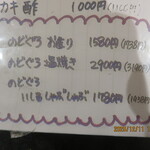 カキ酢 1000円(1100円)
のどぐろ お造り 1580円(1738円)
のどぐろ 塩焼き 2900円(3190円)
のどぐろ
しゃぶしゃぶ 1780円(1958円)